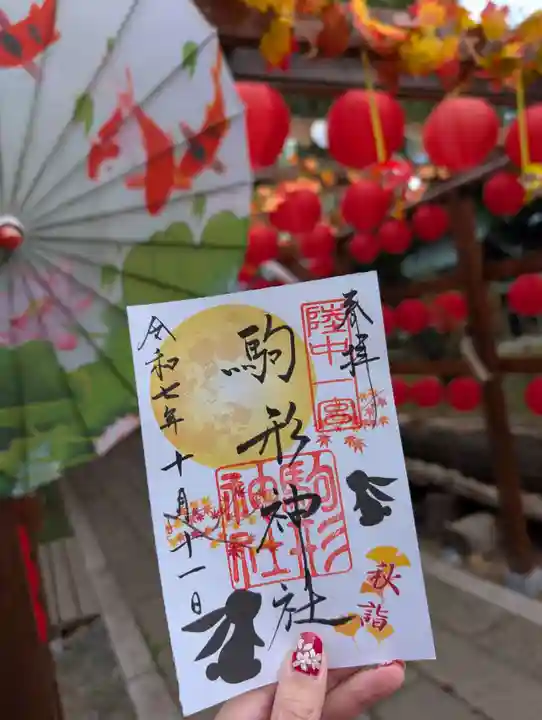 奉拝
陸中一宮
駒形神社
駒形神社
秋詣
令和七年十月十一日